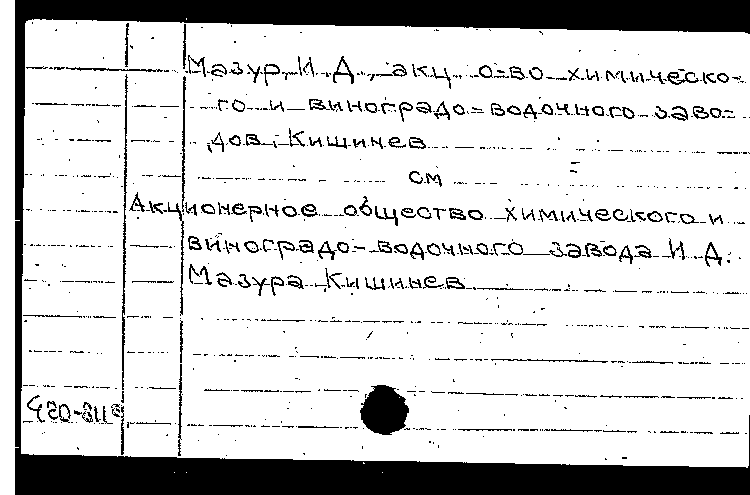 Мазур, И. Д., акц. о-во химическо-
го и виноградо-водочного заво-
дов, Кишинев
см
Акционерное общество химического и
виноградо-водочного завода И. Д.
Мазура Кишинев